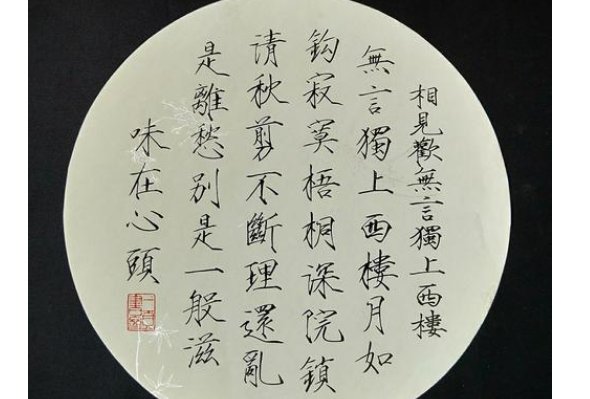 相見歡無言獨上西樓
無言獨上西樓月如
鈎寂寞梧桐深院鎖
请秋剪不斷理還亂
是離愁别是一般滋
味在心頭